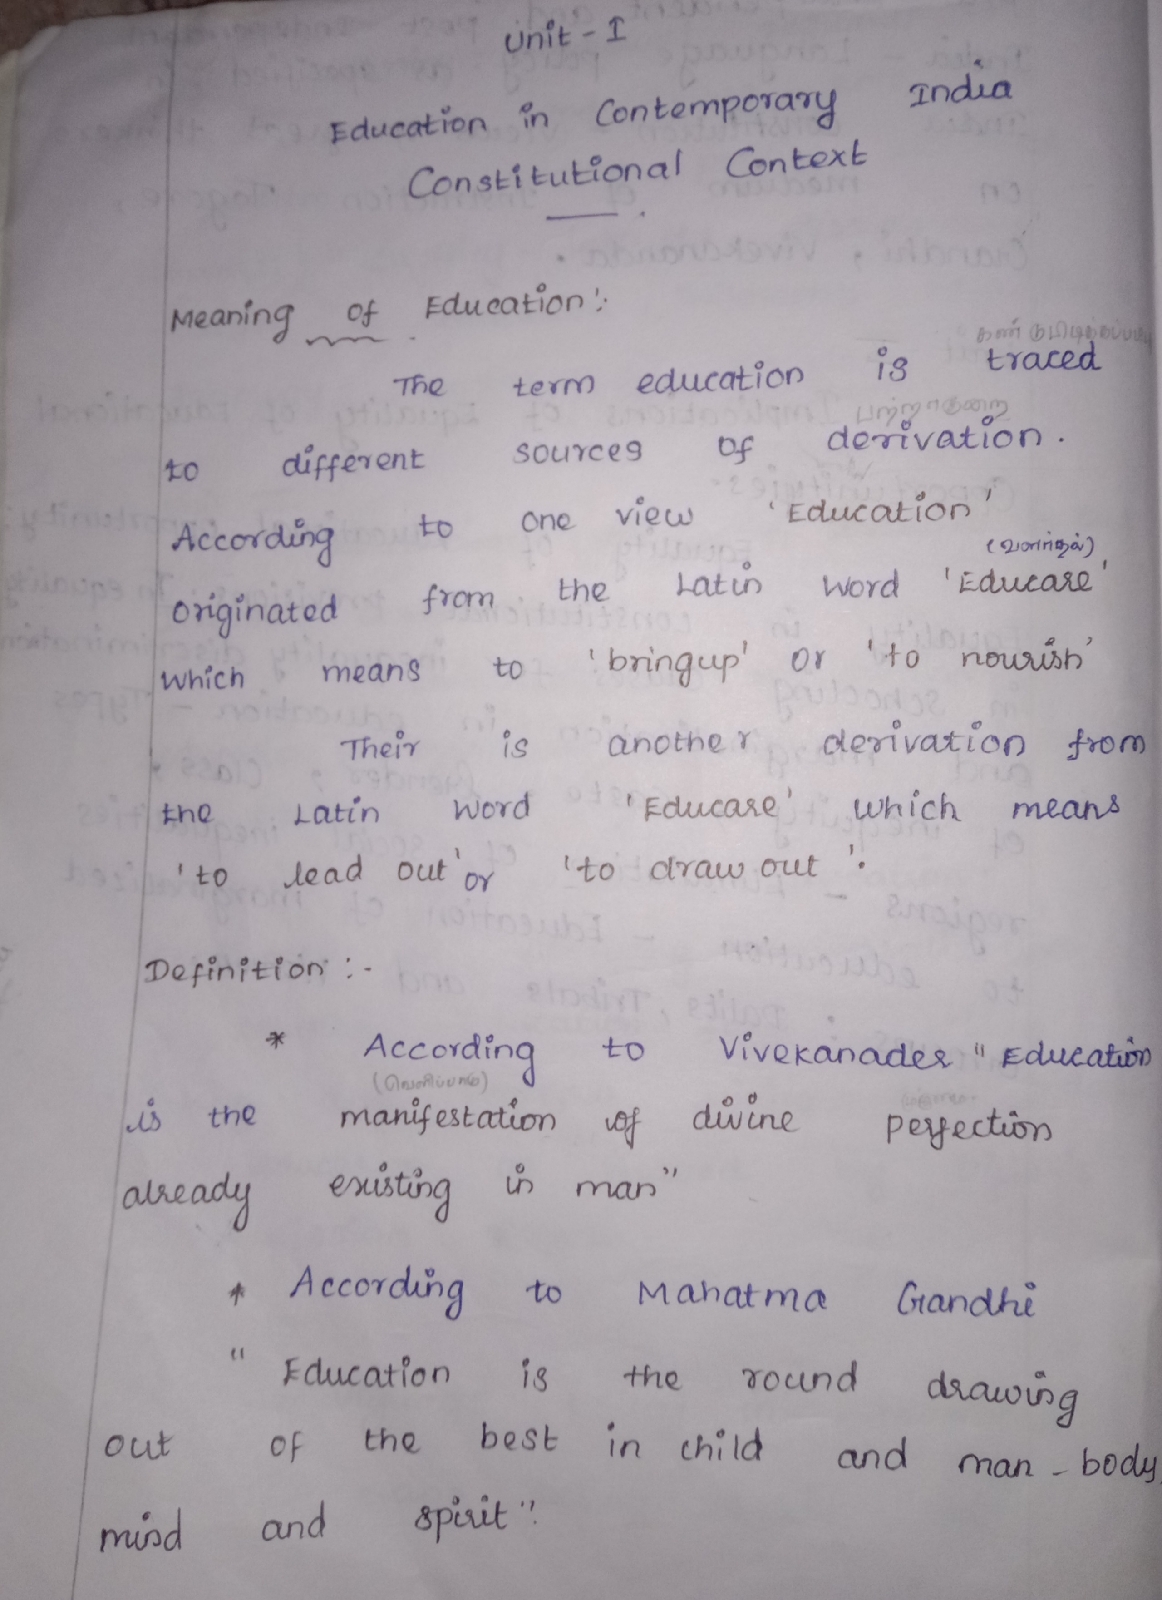 Unit - I
Education in Contemporary India
Constitutional Context
Meaning of Education :
The term education is traced
பற்றாகுறை
to different sources of derivation.
According to one view 'Education'
(வளர்தல்)
originated from the Latin word 'Educare'
which means to 'bringup' or 'to nourish'
Their is another derivation from
the Latin word 'Educare' which means
'to lead out' or 'to draw out'.
Definition :-
* According to Vivekanades "Education
(வெளிப்பாடு)
is the manifestation of divine perfection
already existing in man"
* According to Mahatma Gandhi
" Education is the round drawing
out of the best in child and man - body,
mind and spirit".